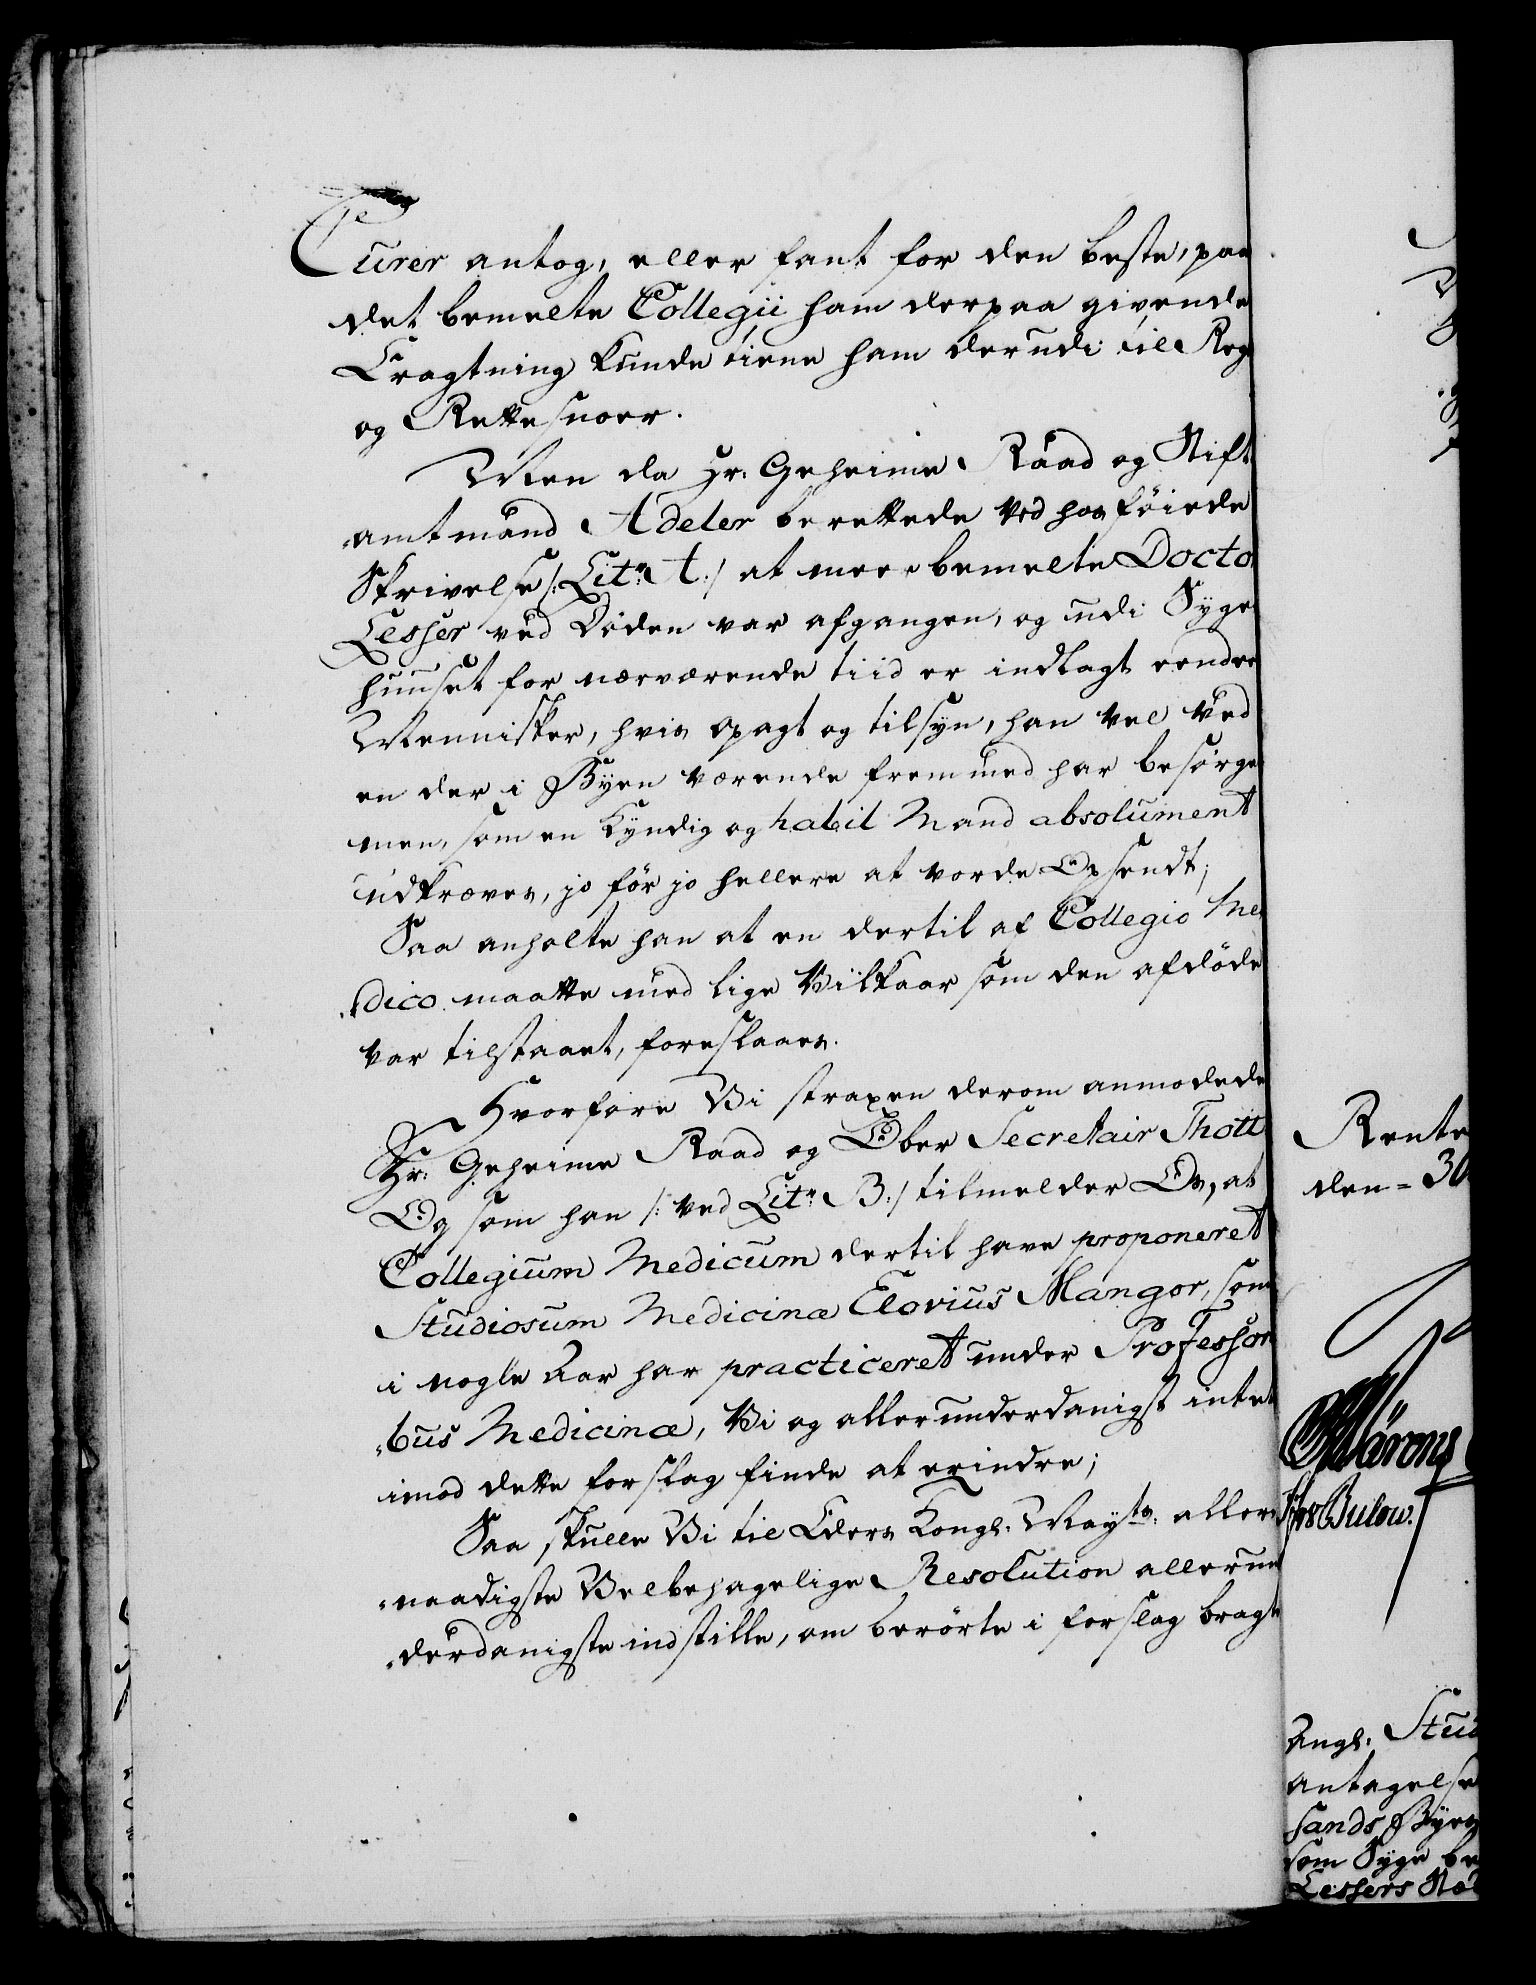 Curer antog, eller fant for den beste, paa
det bemelte Collegii ham derpaa givende
Eragtning kunde tiene ham derudi til Reg
og Rettesnoer.
Men da Hr: Geheime Raad og Stift
amtmand Adeler berettede ved hosföiede
Skrivelse /: Litr A :/ at meer bemelte Docto
Lesser ved Döden var afgangen, og udi Syge
huuset for nærværende tiid er indlagt
Mennisker, hvis opagt og tilsyn, han vel ved
en der i Byen værende fremmed har besörge
men, som en kyndig og habil Mand absolument
udkræves, jo för jo hellere at vorde Opsendt;
Saa anholte han at en dertil af Collegio Me
dico maatte med lige Vilkaar som den afdöde
var tilstaaet, foreslaaes.
Hvorfore Vi straxen derom anmodede
Hr: Geheime Raad og Ober Secretair Thott
Og som han /: ved Litr B :/ tilmelder Os, at
Collegium Medicum dertil have proponeret
Studiosum Medicinæ Elovius Mangor, som
i nogle Aar har practiceret under Professori
bus Medicinæ, Vi og allerunderdanigst intet
imod dette forslag finde at erindre;
Saa skulle Vi til Eders Kongl: Mayts: aller
naadigste Velbehagelige Resolution allerun
derdanigste indstille, om berörte i forslag bragte
Rente
den = 30
Bulow.
Angl: Stud
antagelse
sands Byes
som Syge be
Lessers Stæd